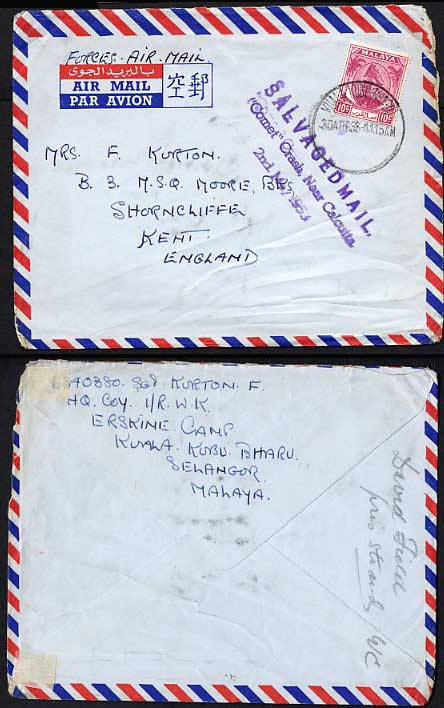 FORCES. AIR MAIL
بالبريد الجوى
AIR MAIL
PAR AVION
空郵
MALAYA
10c 10c
30 APR 53 11.15AM
SALVAGED MAIL.
"Comet" Crash, Near Calcutta.
2nd May 1953
MRS. F. KURTON.
B. 3. M.S.Q. MOORE, BKS,
SHORNCLIFFE
KENT.
ENGLAND
6340380. SGT. KURTON. F.
HQ. COY. 1/R.W.K.
ERSKINE CAMP.
KUALA KUBU BHARU.
SELANGOR.
MALAYA.
David Field
Strand, WC